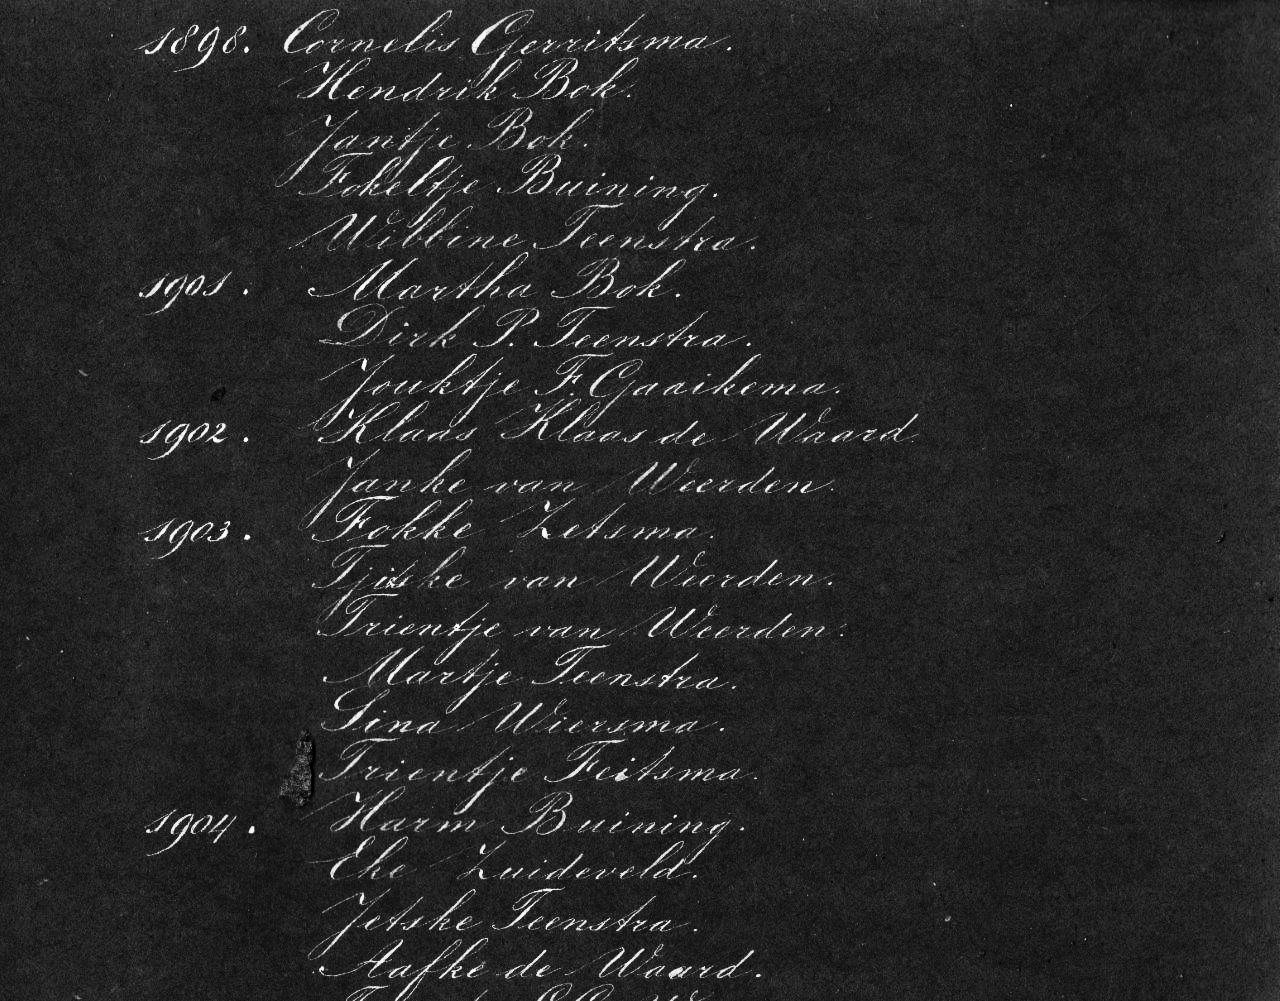 1898. Cornelis Gerritsma.
Hendrik Bok.
Jantje Bok.
Fokeltje Buining.
Wibbine Teenstra.
1901. Martha Bok.
Dirk P. Teenstra.
Jouktje F. Gaaikema.
1902. Klaas Klaas de Waard
Janke van Weerden.
1903. Fokke Zetsma.
Tjitske van Weerden.
Trientje van Weerden.
Martje Teenstra.
Sina Wiersma.
Trientje Feitsma.
1904. Harm Buining.
Eke Zuideveld.
Jetske Teenstra.
Aafke de Waard.